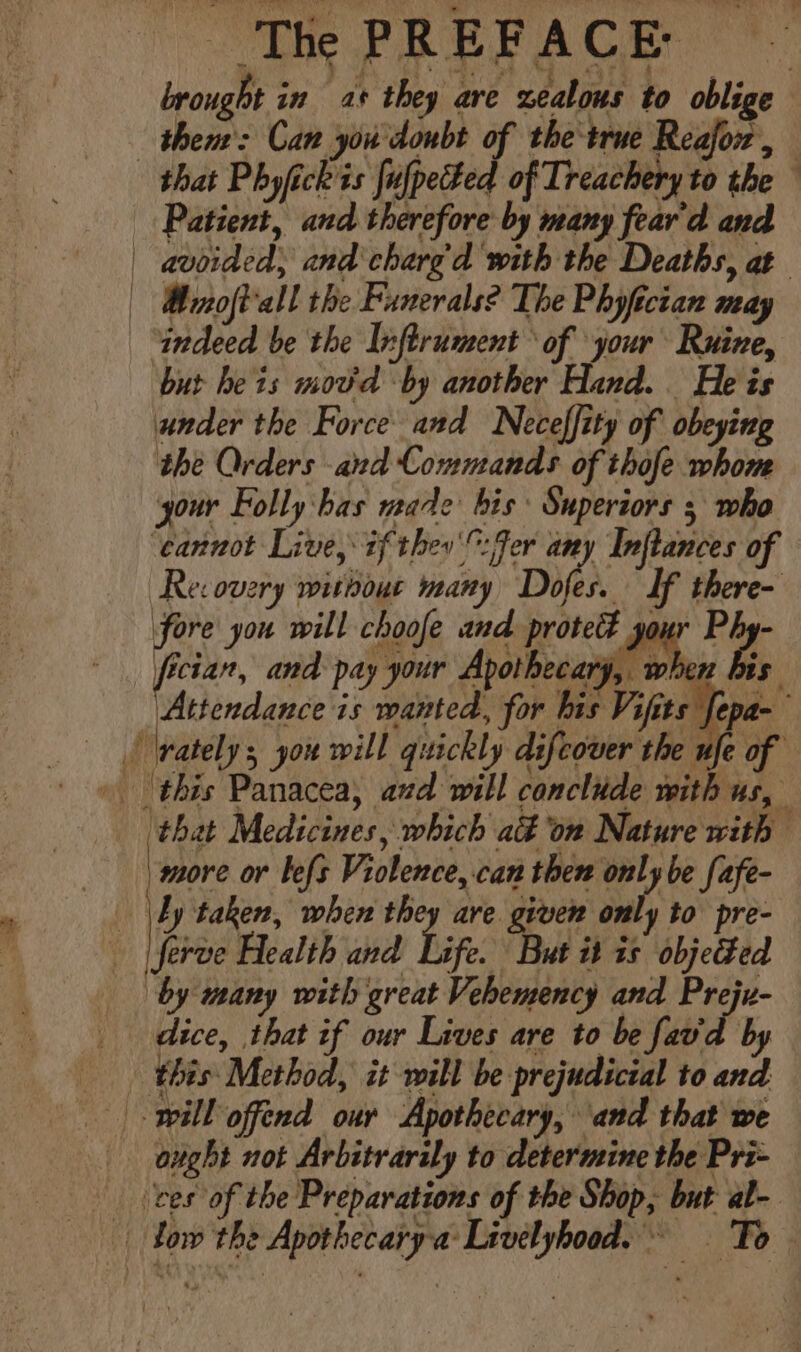 The PREFACE
brought in as they are zealous to oblige
them: Can you doubt of the true Reaſon,
that Phyſick is ſuſpected of Treachery to the
Patient, and therefore by many fear'd and
avoided, and charg'd with the Deaths, at
Almoſt all the Funerals? The Phyſician may
indeed be the Inſtrument of your Ruine,
but he is mov'd by another Hand. He is
under the Force and Neceſſity of obeying
the Orders and Commands of thoſe whom
your Folly has made his Superiors; who
cannot Live, if they ſuffer any Inſtances of
Recovery without many Doſes. If there-
fore you will chooſe and protect your Phy-
ſician, and pay your Apothecary, when his
Attendance is wanted, for his Viſits ſepa-
rately; you will quickly diſcover the uſe of
this Panacea, and will conclude with us,
that Medicines, which act on Nature with
more or leſs Violence, can then only be ſafe-
ly taken, when they are given only to pre-
ſerve Health and Life. But it is objected
by many with great Vehemency and Preju-
dice, that if our Lives are to be ſav'd by
this Method, it will be prejudicial to and
will offend our Apothecary, and that we
ought not Arbitrarily to determine the Pri-
ces of the Preparations of the Shop, but al-
low the Apothecary a Livelyhood. To